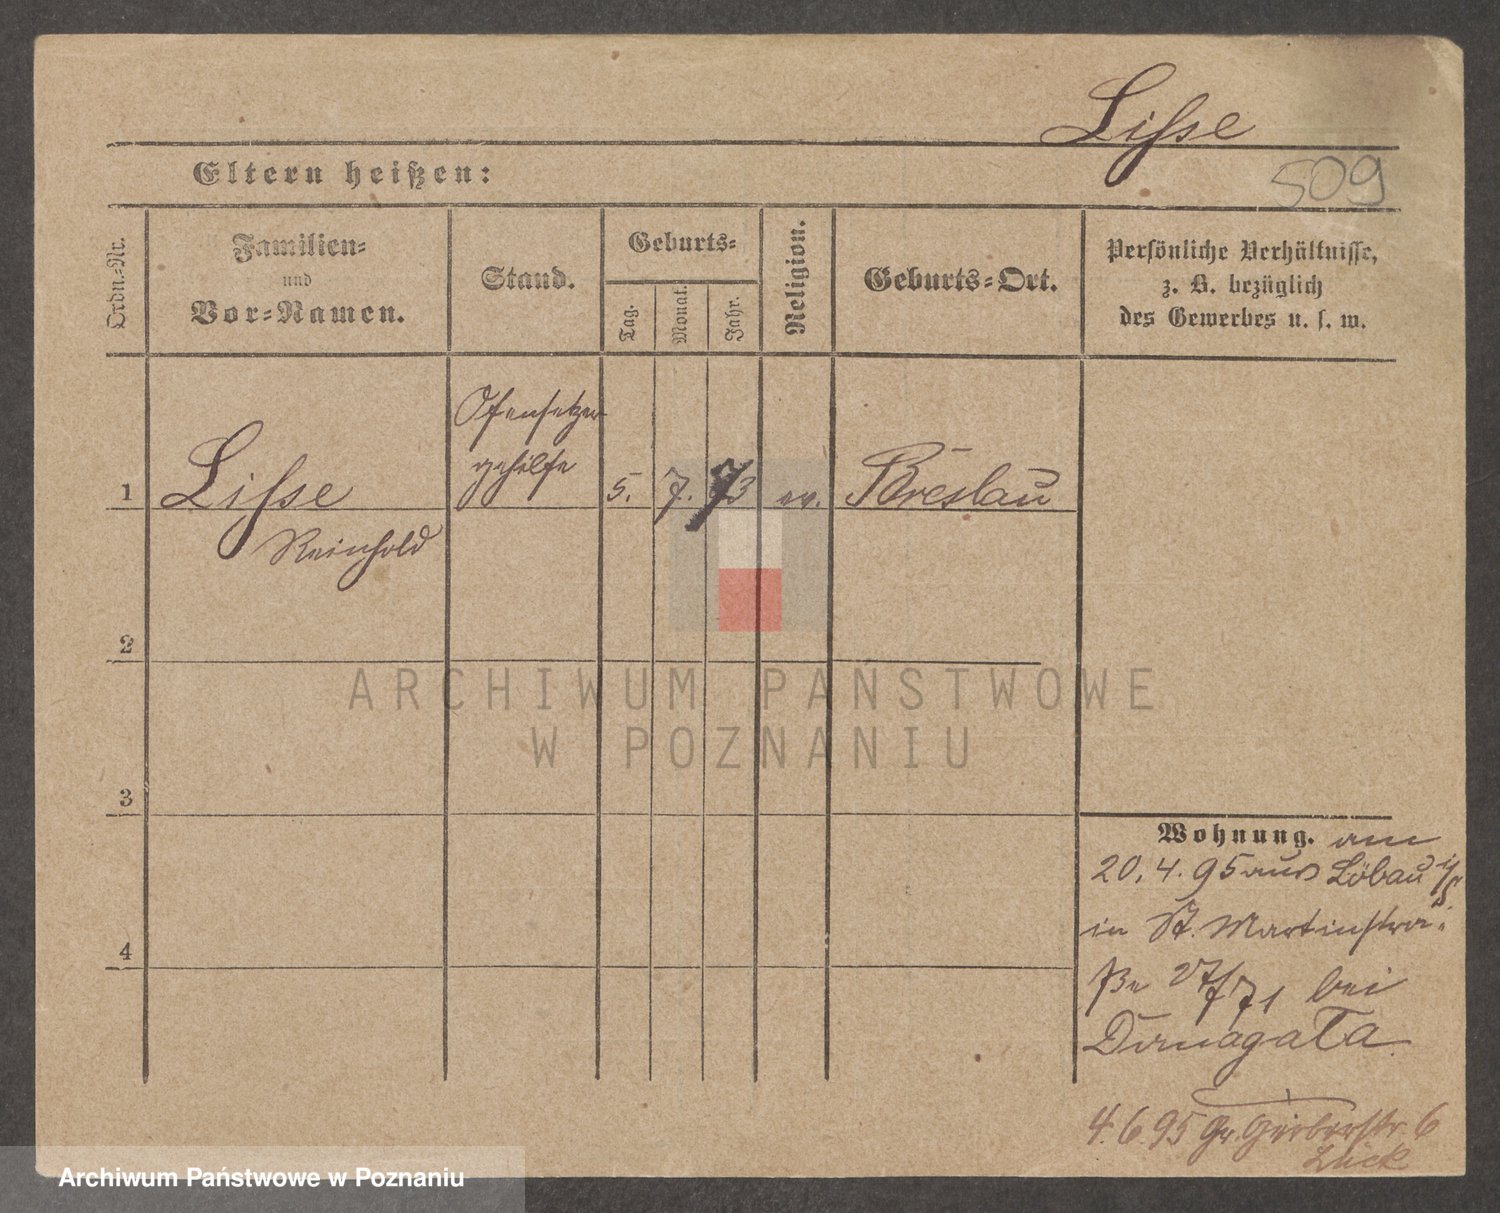 Lisse
509
Eltern heißen:
Ordn.-Nr.
Familien-
und
Vor-Namen.
Stand.
Geburts-
Tag.
Monat.
Jahr.
Religion.
Geburts-Ort.
Persönliche Verhältnisse,
z. B. bezüglich
des Gewerbes u. s. w.
1
Lisse
Reinhold
Ofensetzer
gehilfe
5.
7.
73
ev.
Breslau
2
3
4
ARCHIWUM PAŃSTWOWE
W POZNANIU
Wohnung. am
20.4.95 aus Löbau i/S
in St. Martinstra-
ße 27/71 bei
4.6.95 Gr. Gerberstr. 6
Lück
Archiwum Państwowe w Poznaniu